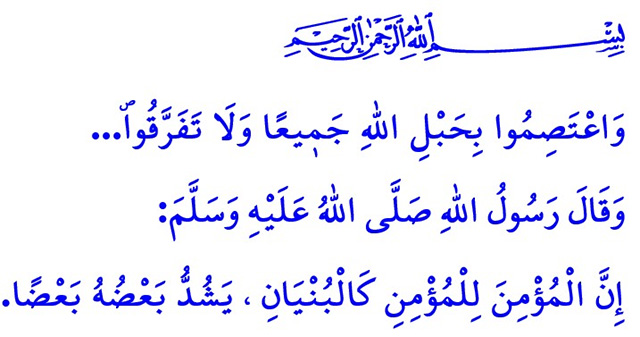 بِسْمِ اللهِ الرَّحْمٰنِ الرَّحِيمِ
وَاعْتَصِمُوا بِحَبْلِ اللهِ جَمٖيعًا وَلَا تَفَرَّقُواۖ...
وَقَالَ رَسُولُ اللهِ صَلَّى اللهُ عَلَيْهِ وَسَلَّمَ:
إِنَّ الْمُؤْمِنَ لِلْمُؤْمِنِ كَالْبُنْيَانِ ، يَشُدُّ بَعْضُهُ بَعْضًا.